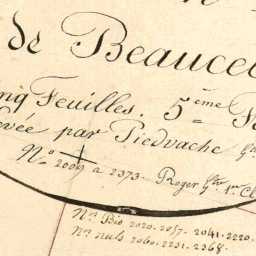 de Beauce
inq Feuilles. 5ème F
evée par Piedvache G
Nº 2009 a 2373 Roger Gtre 1er Cl
Nos Bis 2020. 2057. 2041. 2220.
Nos nuls 2060. 2231. 2368.